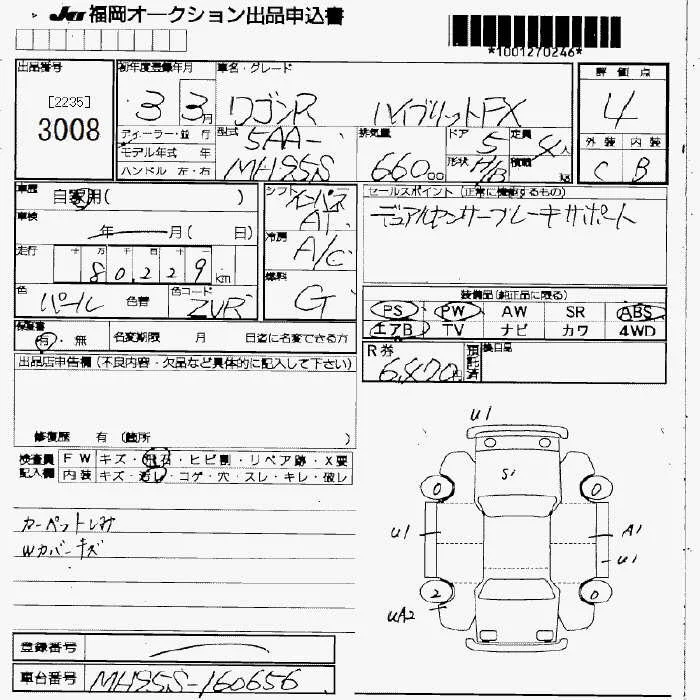 JU 福岡オークション出品申込書
*1001270246*
出品番号 初年度登録年月 車名・グレード 評価点
[2235]
3008
33 3月 ワゴンR ハイブリットFX 4
ディーラー・並行 型式 5AA-MH95S 排気量 660.00 ドア 5 定員 4人
モデル年式 年 形状 H/B 積載 kg
ハンドル 左・右
外装 内装
C B
車歴 自家用( ) シフト インパネAT セールスポイント(正常に機能するもの)
デュアルセンサーブレーキサポート
車検 年 月(日) 冷房 A/C
走行 十 万 千 百 十 一
80,229km
燃料 G
色 パール 色替 色コード ZVR
装備品(純正品に限る)
PS PW AW SR ABS
エアB TV ナビ カワ 4WD
保証書 有・無 名変期限 月 日迄に名変できる方
R券 6,470円 預託済
出品店申告欄(不良内容・欠品など具体的に記入して下さい)
修復歴 有(箇所 )
検査員 FW キズ・飛石・ヒビ割・リペア跡・X要
記入欄 内装 キズ・汚レ・コゲ・穴・スレ・キレ・破レ
カーペットしみ
Wカバーキズ
U1
S1
0 0
U1 A1
U1
2 0
UA2
登録番号
車台番号 MH95S-160656